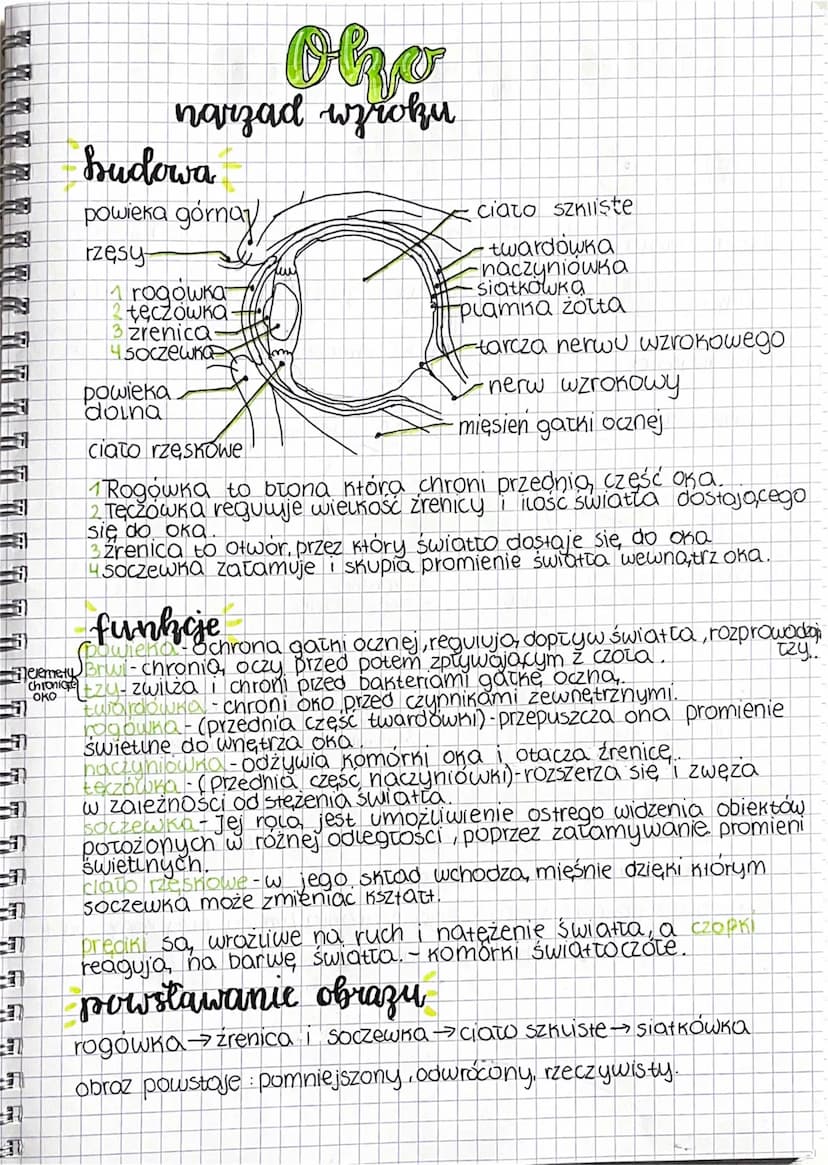 Oko
narząd wzroku
budowa
powieka górna
rzęsy
1 rogówka
2 tęczówka
3 źrenica
4 soczewka
powieka
dolna
ciało rzęskowe
ciało szkliste
twardówka
naczyniówka
siatkówka
plamka żółta
tarcza nerwu wzrokowego
nerw wzrokowy
mięsień gałki ocznej
1 Rogówka to błona która chroni przednią część oka.
2 Tęczówka reguluje wielkość źrenicy i ilość światła dostającego
się do oka.
3 źrenica to otwór, przez który światło dostaje się do oka
4 soczewka załamuje i skupia promienie światła wewnątrz oka.
funkcje
powieka - ochrona gałki ocznej, regulują dopływ światła, rozprowadzają
łzy..
elementy
chroniące
oko
Brwi - chronią oczy przed potem zpływającym z czoła.
łzy - zwilża i chroni przed bakteriami gałkę oczną.
twardówka - chroni oko przed czynnikami zewnętrznymi.
rogówka - (przednia część twardówki) - przepuszcza ona promienie
świetlne do wnętrza oka.
naczyniówka - odżywia komórki oka i otacza źrenicę..
tęczówka - (przednia część naczyniówki) - rozszerza się i zwęża
w zależności od stężenia światła.
soczewka - Jej rolą jest umożliwienie ostrego widzenia obiektów
położonych w różnej odległości, poprzez załamywanie promieni
świetlnych.
ciało rzęskowe - w jego skład wchodzą mięśnie dzięki którym
soczewka może zmieniać kształt.
pręciki są wrożliwe na ruch i natężenie światła, a czopki
reagują na barwę światła. - komórki światłoczółe.
powstawanie obrazu
rogówka → źrenica i soczewka → ciało szkliste → siatkówka
obraz powstaje : pomniejszony, odwrócony, rzeczywisty.